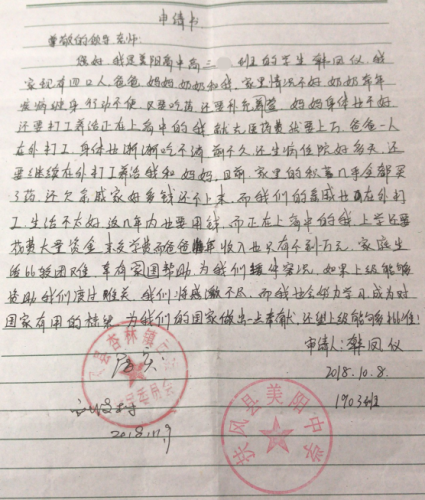 申请书
尊敬的领导、老师:
您好,我是美阳高中高三 班的学生韩凤仪,我
家现有四口人,爸爸,妈妈奶奶和我,家里情况不好,奶奶年年
发病缠身,行动不便,只要吃药,还要补充养营,妈妈身体也不好
还要打工养活正在上高中的我,就大医药费就要上万,爸爸一人
在外打工,身体也渐渐吃不消,前不久还生病住院好多天,还
要继续在外打工养活我和妈妈,目前,家里的积蓄几乎全都买
了药,还欠亲戚家好多钱还不上来,而我们的亲戚也在外打
工,生活不太好,近几年内也要用钱,而正在上高中的我,上学还要
花费大量资金,来交学费而爸爸年收入也只有不到万元,家庭生
活比较困难,享有国家帮助,为我们 实况,如果上级能够
资助我们度过难关,我们将感激不尽,而我也会努力学习,成为对
国家有用的栋梁,为我们的国家做出一点奉献,还望上级能够批准!
申请人:韩凤仪
2018.10.8.
1903班
属实
2018.11.9
杏林镇
扶风县美阳中学